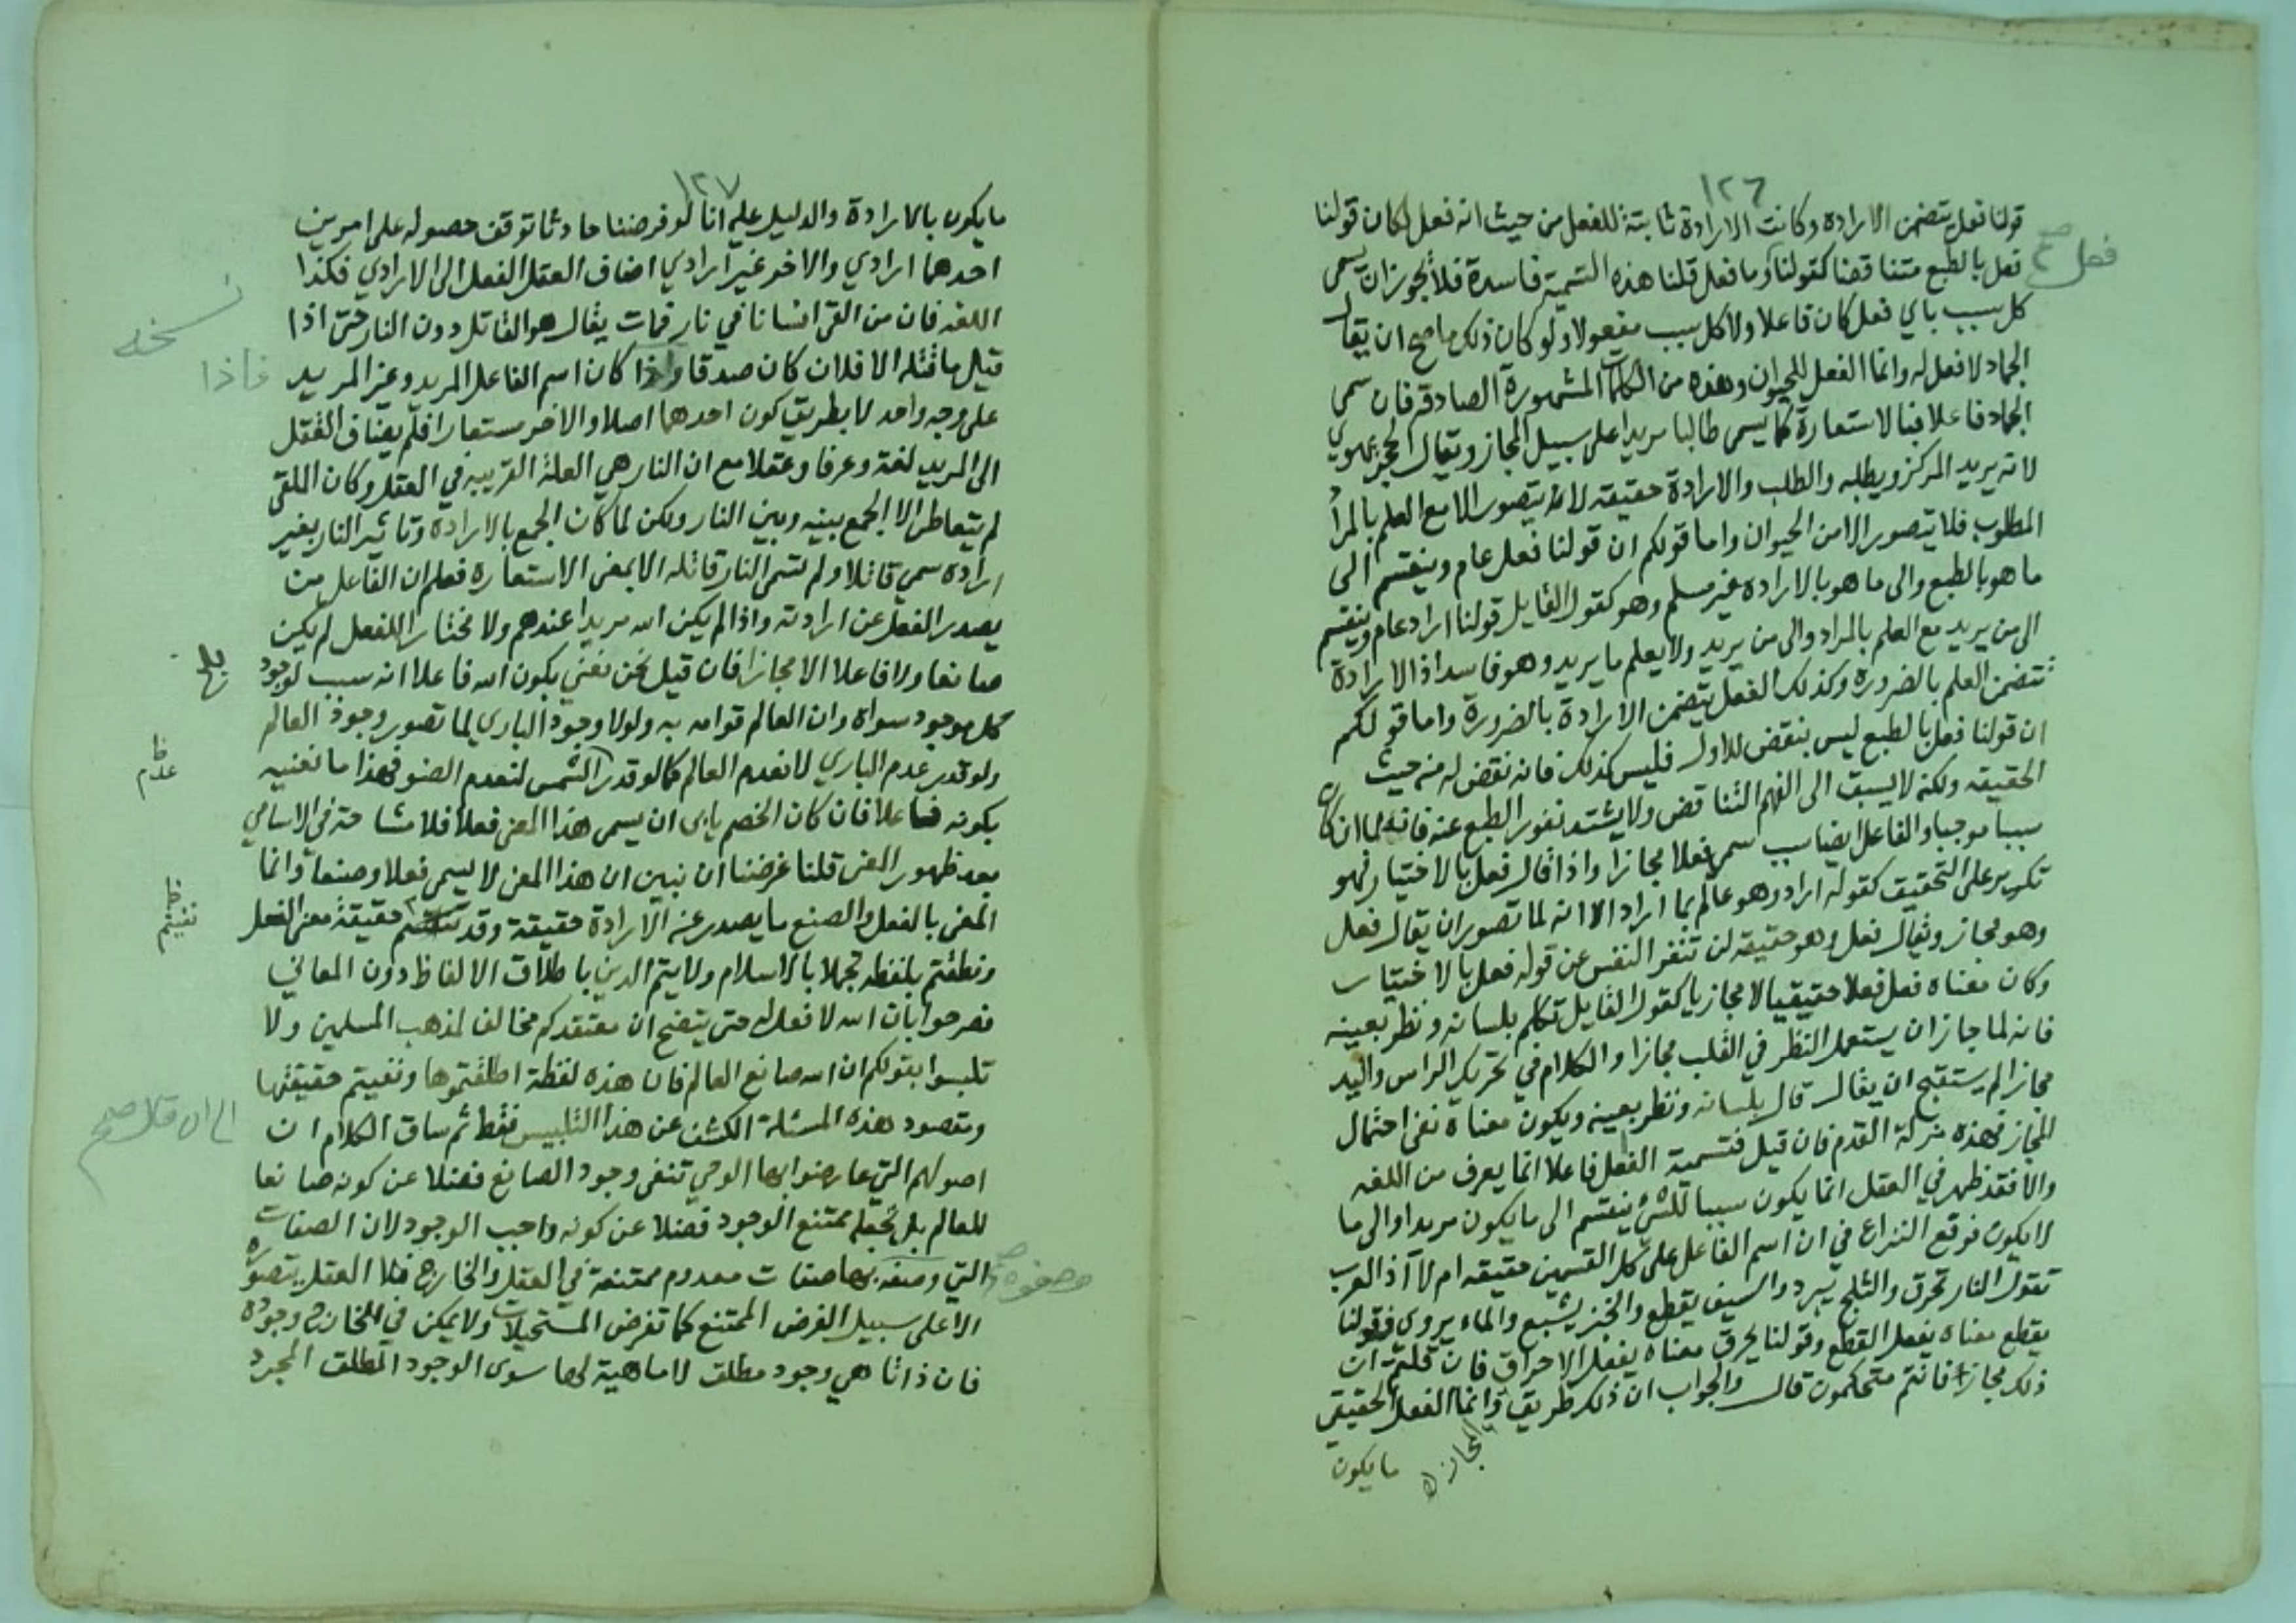 ١٢٦
قولنا فعل يتضمن الارادة وكانت الارادة ثابتة للفعل من حيث انه فعل لكان قولنا
فعل صح
فعل بالطبع متناقضا كقولنا وما فعل قلنا هذه التسمية فاسدة فلا يجوز ان يسمى
كل سبب باي فعل كان فاعلا ولا كل سبب مفعولا ولو كان ذلك ما صح ان يقال
الجماد لا فعل له وانما الفعل للحيوان وهذه من الكلمات المشهورة الصادقة فان سمى
الجماد فاعلا فبالاستعارة كما يسمى طالبا مريدا على سبيل المجاز ويقال الحجر يهوي
لانه يريد المركز ويطلبه والطلب والارادة حقيقه لانه يتصور الا مع العلم بالمراد
المطلوب فلا يتصور الا من الحيوان واما قولكم ان قولنا فعل عام وينقسم الى
ما هو بالطبع والى ما هو بالارادة غير مسلم وهو كقول القايل قولنا اراد عام وينقسم
الى من يريد مع العلم بالمراد والى من يريد ولا يعلم ما يريد وهو فاسد اذ الارادة
تتضمن العلم بالضرورة وكذلك الفعل يتضمن الارادة بالضرورة واما قولكم
ان قولنا فعل بالطبع ليس بنقض للاول فليس كذلك فانه نقض له من حيث
الحقيقه ولكنه لا يسبق الى الفهم التناقض ولا يشتد نفور الطبع عنه فانه لما ان كان
سببا موجبا والفاعل ايضا سبب سمي فعلا مجازا واذا قال فعل بالاختيار فهو
تكرير على التحقيق كقوله اراد وهو عالم بما اراد الا انه لما تصور ان يقال فعل
وهو مجاز ويقال فعل وهو حقيقه لن تنفر النفس عن قوله فعل بالاختيار
وكان معناه فعل فعلا حقيقيا لا مجازيا كقول القايل تكلم بلسانه ونظر بعينه
فانه لما جاز ان يستعمل النظر في القلب مجازا والكلام في تحريك الراس واليد
مجازا لم يستقبح ان يقال قال بلسانه ونظر بعينه ويكون معناه نفي احتمال
المجاز فهذه مزلة القدم فان قيل فتسمية الفعل فاعلا انما يعرف من اللغه
والا فقد ظهر في العقل انما يكون سببا للشئ ينقسم الى ما يكون مريدا والى ما
لا يكون فوقع النزاع في ان اسم الفاعل على كل القسمين حقيقه ام لا آذ العرب
تقول النار تحرق والثلج يبرد والسيف يقطع والخبز يشبع والماء يروي فقولنا
يقطع معناه يفعل القطع وقولنا يحرق معناه يفعل الاحراق فان قلتم ان
ذلك مجازا فانتم متحكمون قال والجواب ان ذلك طريق وانما الفعل الحقيقي
المجاز
ما يكون
١٢٧
ما يكون بالارادة والدليل عليه انا لو فرضنا حادثا توقف حصوله على امرين
احدهما ارادي والاخر غير ارادي اضاف العقل الفعل الى الارادي فكذا
اللغه فان من القى انسانا في نار فمات يقال هو القاتل دون النار حتى اذا
نسخه
فاذا
قيل ما قتله الا فلان كان صدقا واذا كان اسم الفاعل المريد وغير المريد
على وجه واحد لا بطريق كون احدهما اصلا والاخر مستعارا فلم يضاف القتل
الى المريد لغة وعرفا وعقلا مع ان النار هي العلة القريبه في العقل وكان الملقي
لم يتعاطى الا الجمع بينه وبين النار ولكن لما كان الجمع بالارادة وتاثير النار بغير
ارادة سمي قاتلا ولم تسمى النار قاتله الا بمعنى الاستعارة فعلم ان الفاعل من
يصدر الفعل عن ارادته واذا لم يكن الله مريدا عندهم ولا مختارا للفعل لم يكن
صانعا ولا فاعلا الا مجازا فان قيل نحن نعني بكون الله فاعلا انه سبب لوجود
كل موجود سواه وان العالم قوامه به ولولا وجود الباري لما تصور وجود العالم
ولو قدر عدم الباري لانعدم العالم كما لو قدر الشمس لنعدم الضو فهذا ما نعنيه
عدم ظ
بكونه فاعلا فان كان الخصم يابى ان يسمى هذا المعنى فعلا فلا مشاحة في الاسامي
بعد ظهور المعنى قلنا غرضنا ان نبين ان هذا المعنى لا يسمى فعلا وصنعا وانما
المعنى بالفعل والصنع ما يصدر عنه الارادة حقيقة وقد حقيقة معنى الفعل
نفيتم ظ
ونطقتم بلفظه تجملا بالاسلام ولا يتم الدين باطلاق الالفاظ دون المعاني
فصرحوا بان الله لا فعل له حتى يتضح ان معتقدكم مخالف لمذهب المسلمين ولا
تلبسوا بقولكم ان الله صانع العالم فان هذه لفظة اطلقتموها ونفيتم حقيقتها
ومقصود هذه المسئلة الكشف عن هذا التلبيس فقط ثم ساق الكلام ان
الى ان قال صح
اصولهم التي عارضوا بها الوحي تنفي وجود الصانع فضلا عن كونه صانعا
للعالم بل تجعله ممتنع الوجود فضلا عن كونه واجب الوجود لان الصفات
التي وصفه بها صفات معدوم ممتنعة في العقل والخارج فلا العقل يتصوره
وصفوه صح
الا على سبيل الفرض الممتنع كما تفرض المستحيلات ولا يمكن في الخارج وجوده
فان ذاتا هي وجود مطلق لا ماهية لها سوى الوجود المطلق المجرد